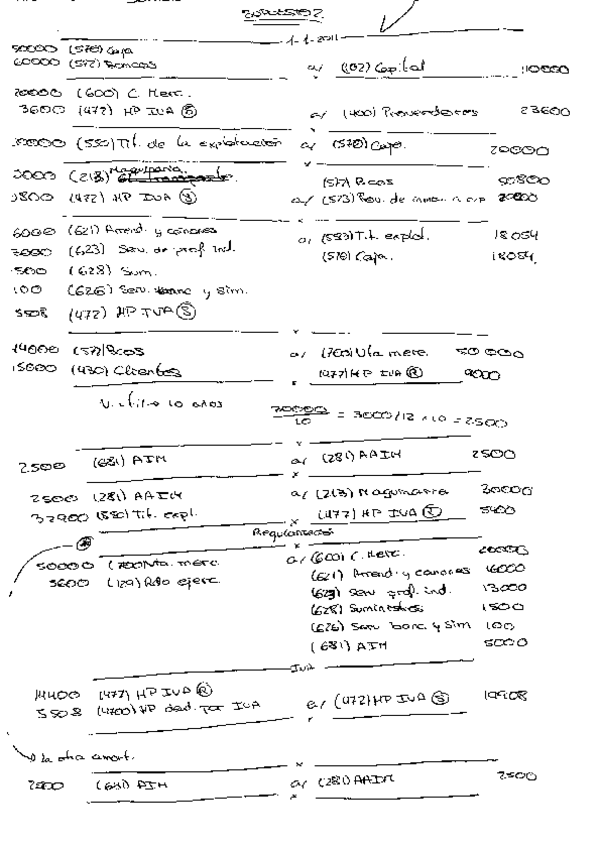 SUPUESTO 2
1-1-2011
50000 (570) Caja
60000 (572) Bancos a/ (102) Capital 110000
20000 (600) C. Merc.
3600 (472) HP IVA Ⓢ a/ (400) Proveedores 23600
(550) Tit. de la explotación a/ (570) Caja. 20000
Maquinaria
(213)
(472) HP IVA Ⓢ a/ (523) Prov. de inmov. a c/p
(572) Bcos
6000 (621) Arrend. y cánones a/ (550) Tit. explot. 18054
(623) Serv. de prof. ind. (570) Caja. 18054
(628) Sum.
100 (626) Serv. banc y sim.
5508 (472) HP IVA Ⓢ
(572) Bcos a/ (700) Vta merc. 50000
15000 (430) Clientes (477) HP IVA Ⓡ 9000
V. útil → 10 años
= 3000/12 × 10 = 2500
2500 (681) AIM a/ (281) AAIM 2500
2500 (281) AAIM a/ (213) Maquinaria 30000
32900 (550) Tit. expl. (477) HP IVA 5400
Regularización
50000 (700) Vta. merc. a/ (600) C. Merc. 20000
(129) Rdo ejerc. (621) Arrend. y cánones 16000
(623) Serv prof. ind. 13000
(628) Suministros 1500
(626) Serv banc. y Sim 100
(681) AIM 5000
IVA
14400 (477) HP IVA Ⓡ
5508 (4700) HP deud. por IVA a/ (472) HP IVA Ⓢ 19908
→ la otra amort.
2500 (681) AIM a/ (281) AAIM 2500